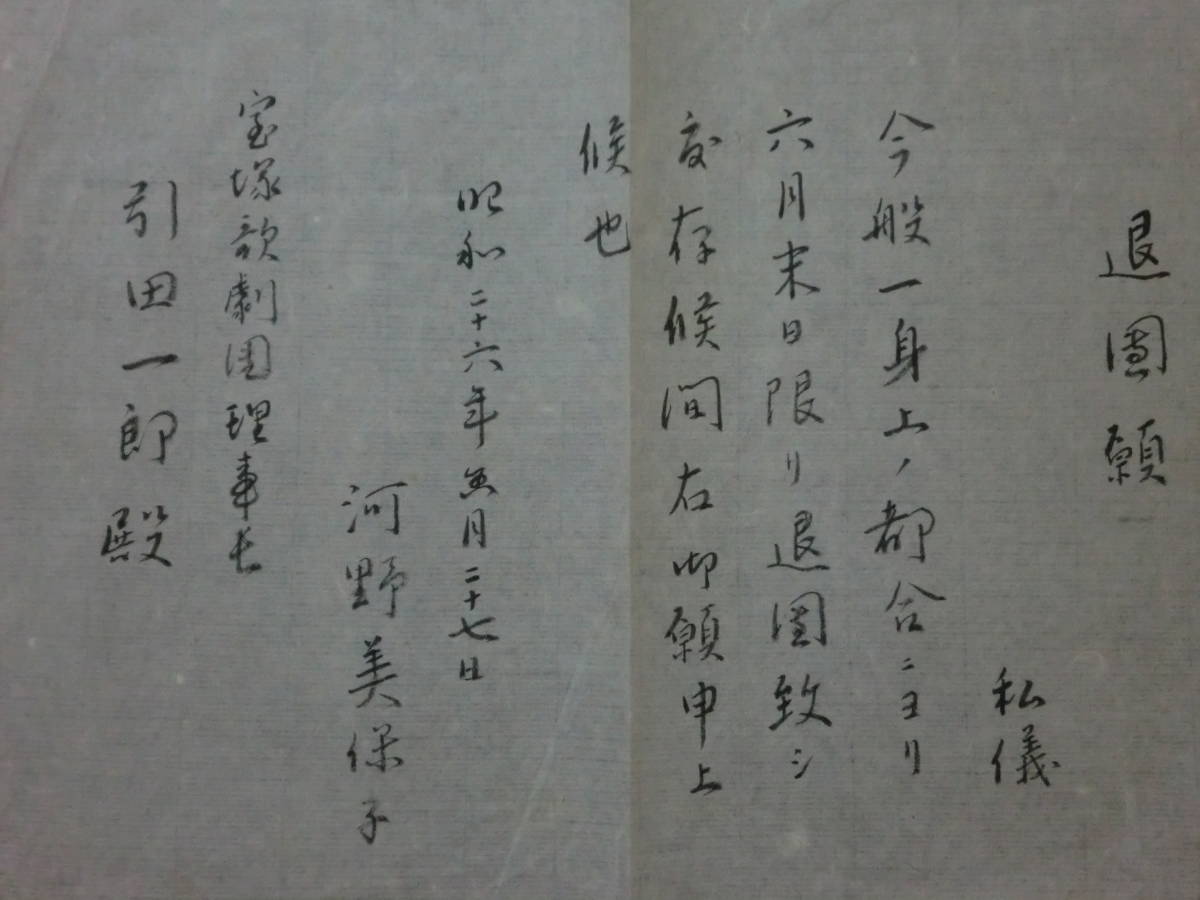 退團願
私儀
今般一身上ノ都合ニヨリ
六月末日限リ退團致シ
度存候間右御願申上
候也
昭和二十六年五月二十七日
河野美保子
宝塚歌劇団理事長
引田一郎殿